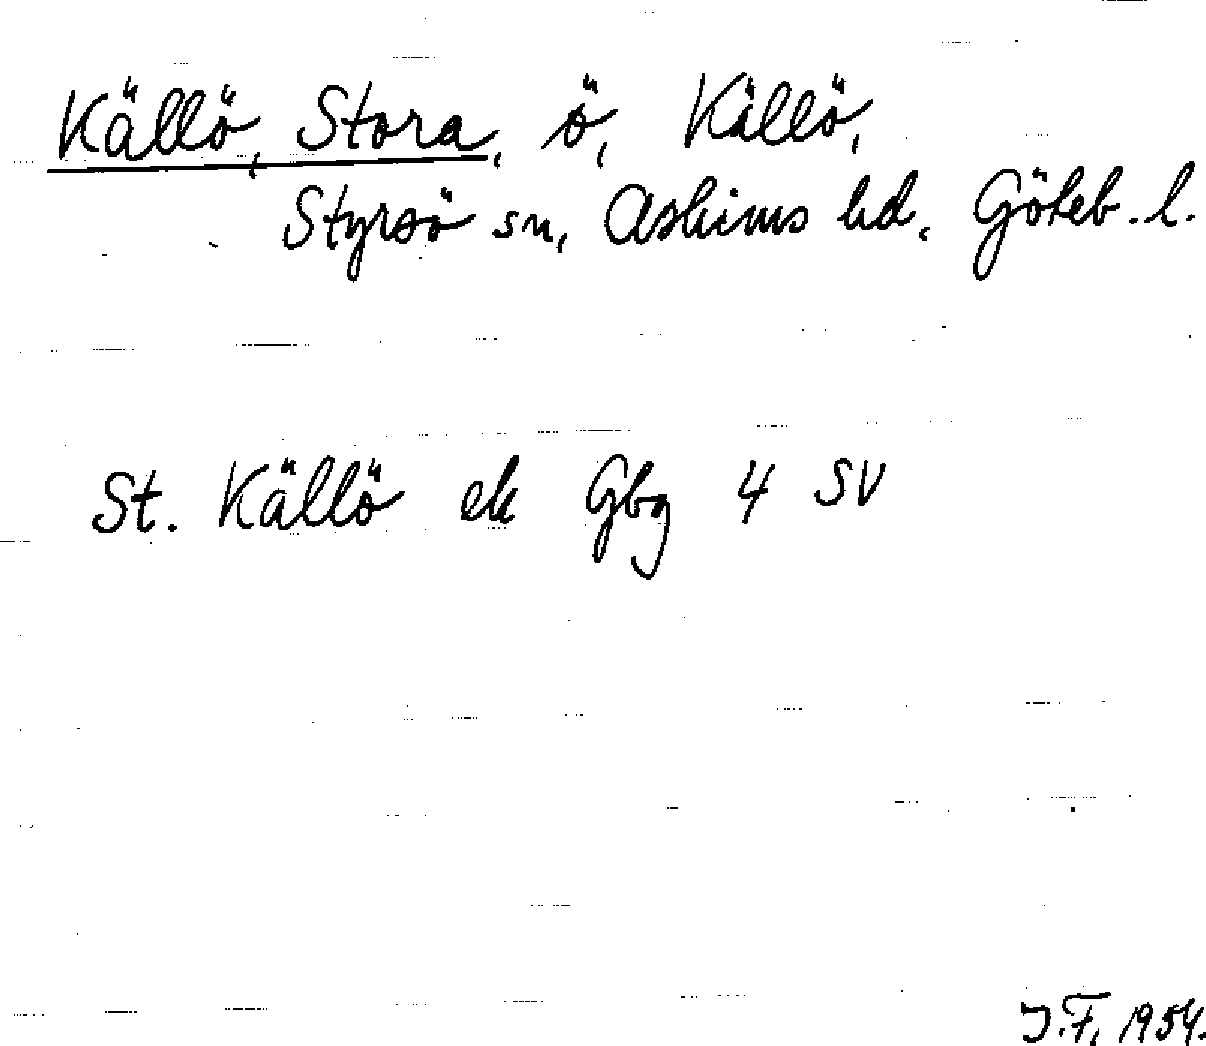 Källö, Stora, ö, Källö,
Styrsö sn, Askims hd, Göteb. l.
St. Källö ek Gbg 4 SV
J.F. 1954.